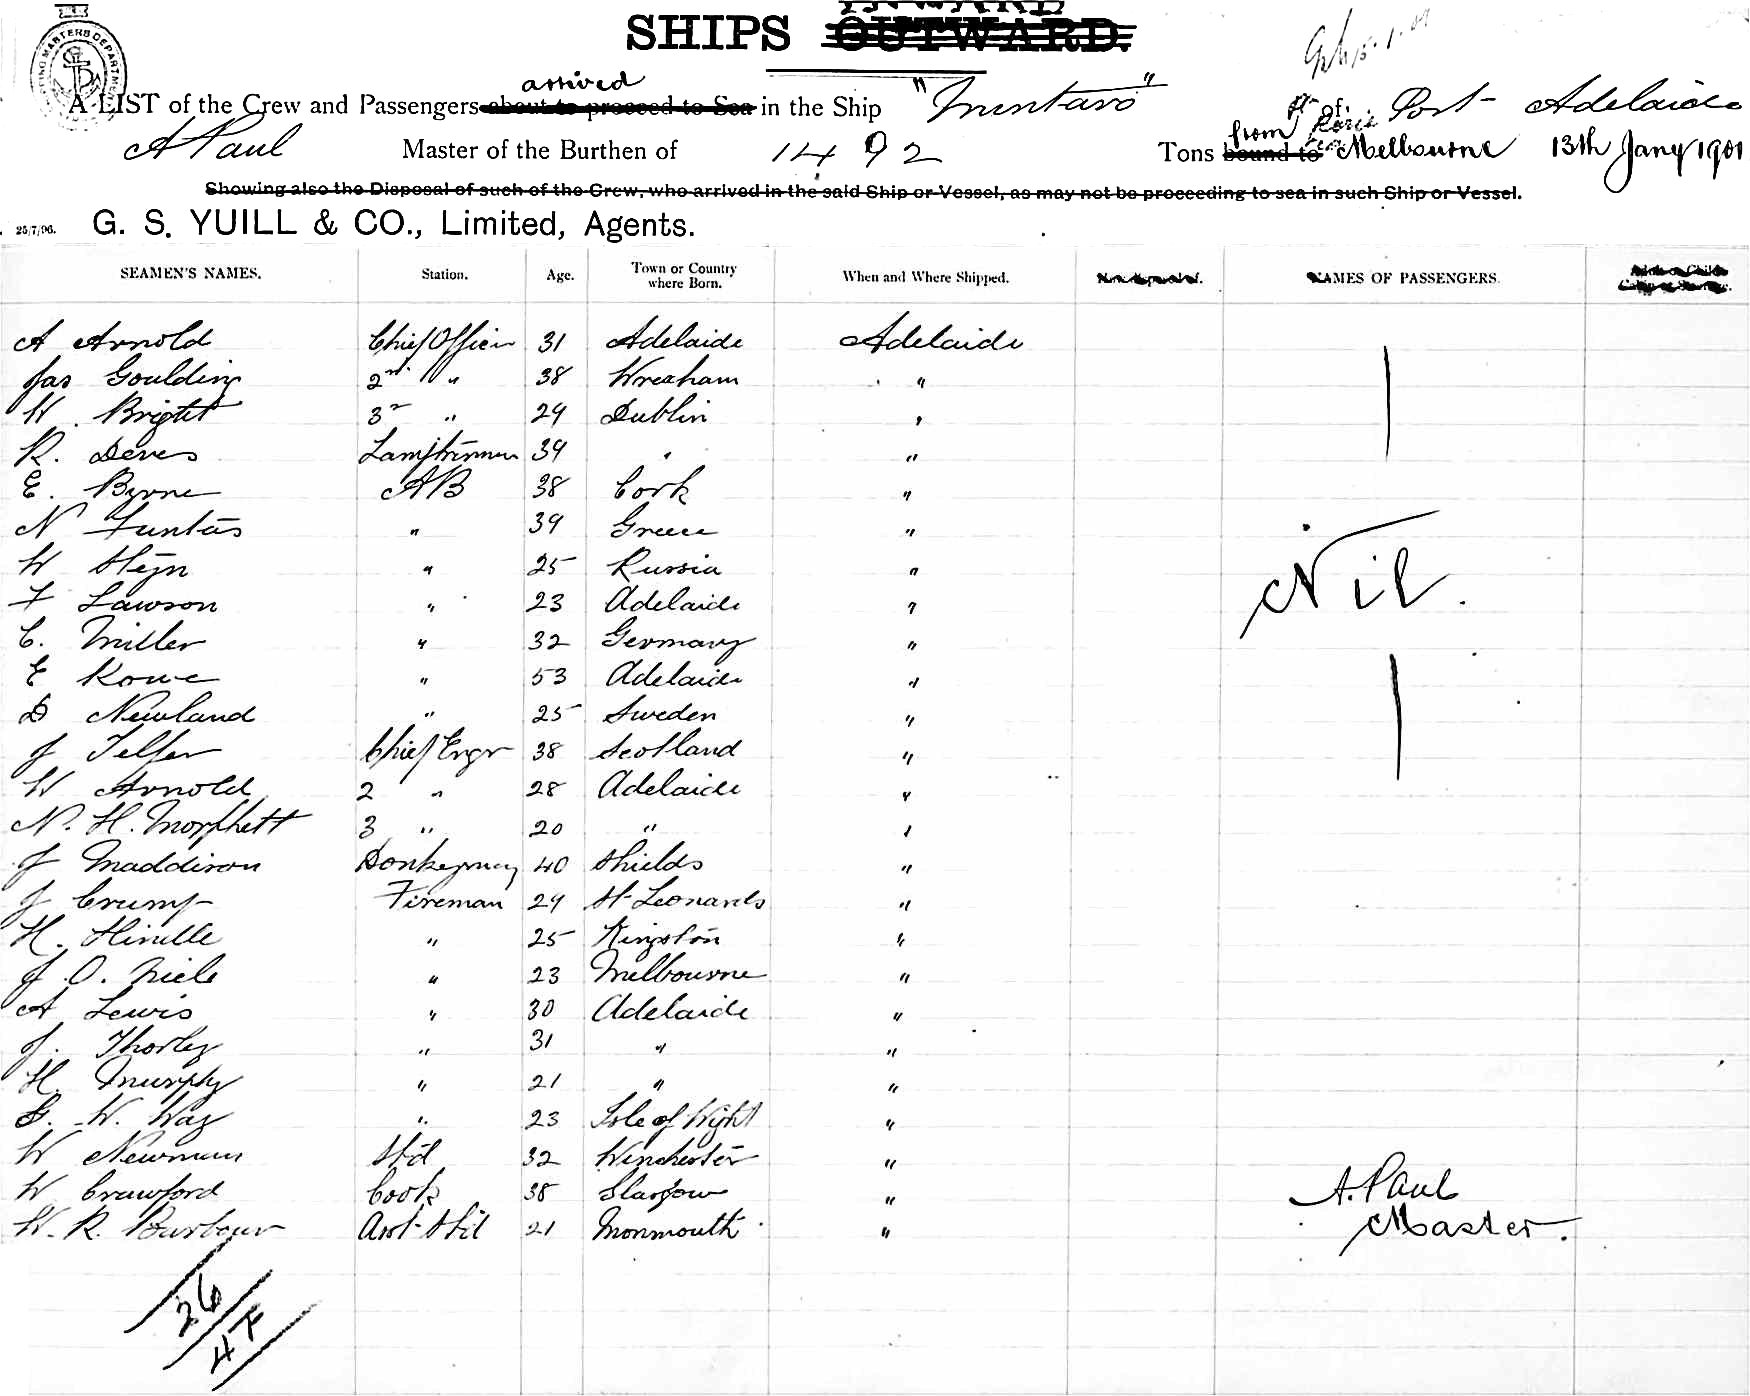 INWARD
SHIPS OUTWARD.
SHIPPING MASTERS DEPARTMENT
arrived
A LIST of the Crew and Passengers about to proceed to Sea in the Ship "Mintaro" of Port Adelaide
A Paul Master of the Burthen of 1492 Tons bound to from Melbourne 13th Jany 1901
Showing also the Disposal of such of the Crew, who arrived in the said Ship or Vessel, as may not be proceeding to sea in such Ship or Vessel.
25/7/96. G. S. YUILL & CO., Limited, Agents.
SEAMEN'S NAMES. Station. Age. Town or Country where Born. When and Where Shipped. NAMES OF PASSENGERS.
A Arnold Chief Officer 31 Adelaide Adelaide
Jas Goulding 2nd " 38 Wrexham "
W. Bright 3rd " 29 Dublin "
R. Deves Lamptrimmer 39 " "
E. Byrne AB 38 Cork "
N Funtas " 39 Greece "
W Steyn " 25 Russia "
F Lawson " 23 Adelaide "
Nil.
C. Miller " 32 Germany "
E Rowe " 53 Adelaide "
D Newland " 25 Sweden "
J Telfer Chief Engr 38 Scotland "
W Arnold 2 " 28 Adelaide "
N. H. Morphett 3 " 20 " "
J Maddison Donkeyman 40 Shields "
J Crump Fireman 29 St Leonards "
H. Hindle " 25 Kingston "
J O. Niele " 23 Melbourne "
A Lewis " 30 Adelaide "
J. Thorley " 31 " "
H. Murphy " 21 " "
G. W. Way " 23 Isle of Wight "
W Newman Std 32 Winchester "
W Crawford Cook 38 Glasgow "
A. Paul
W. R. Barbour Asst Std 21 Monmouth "
Master.
26
47